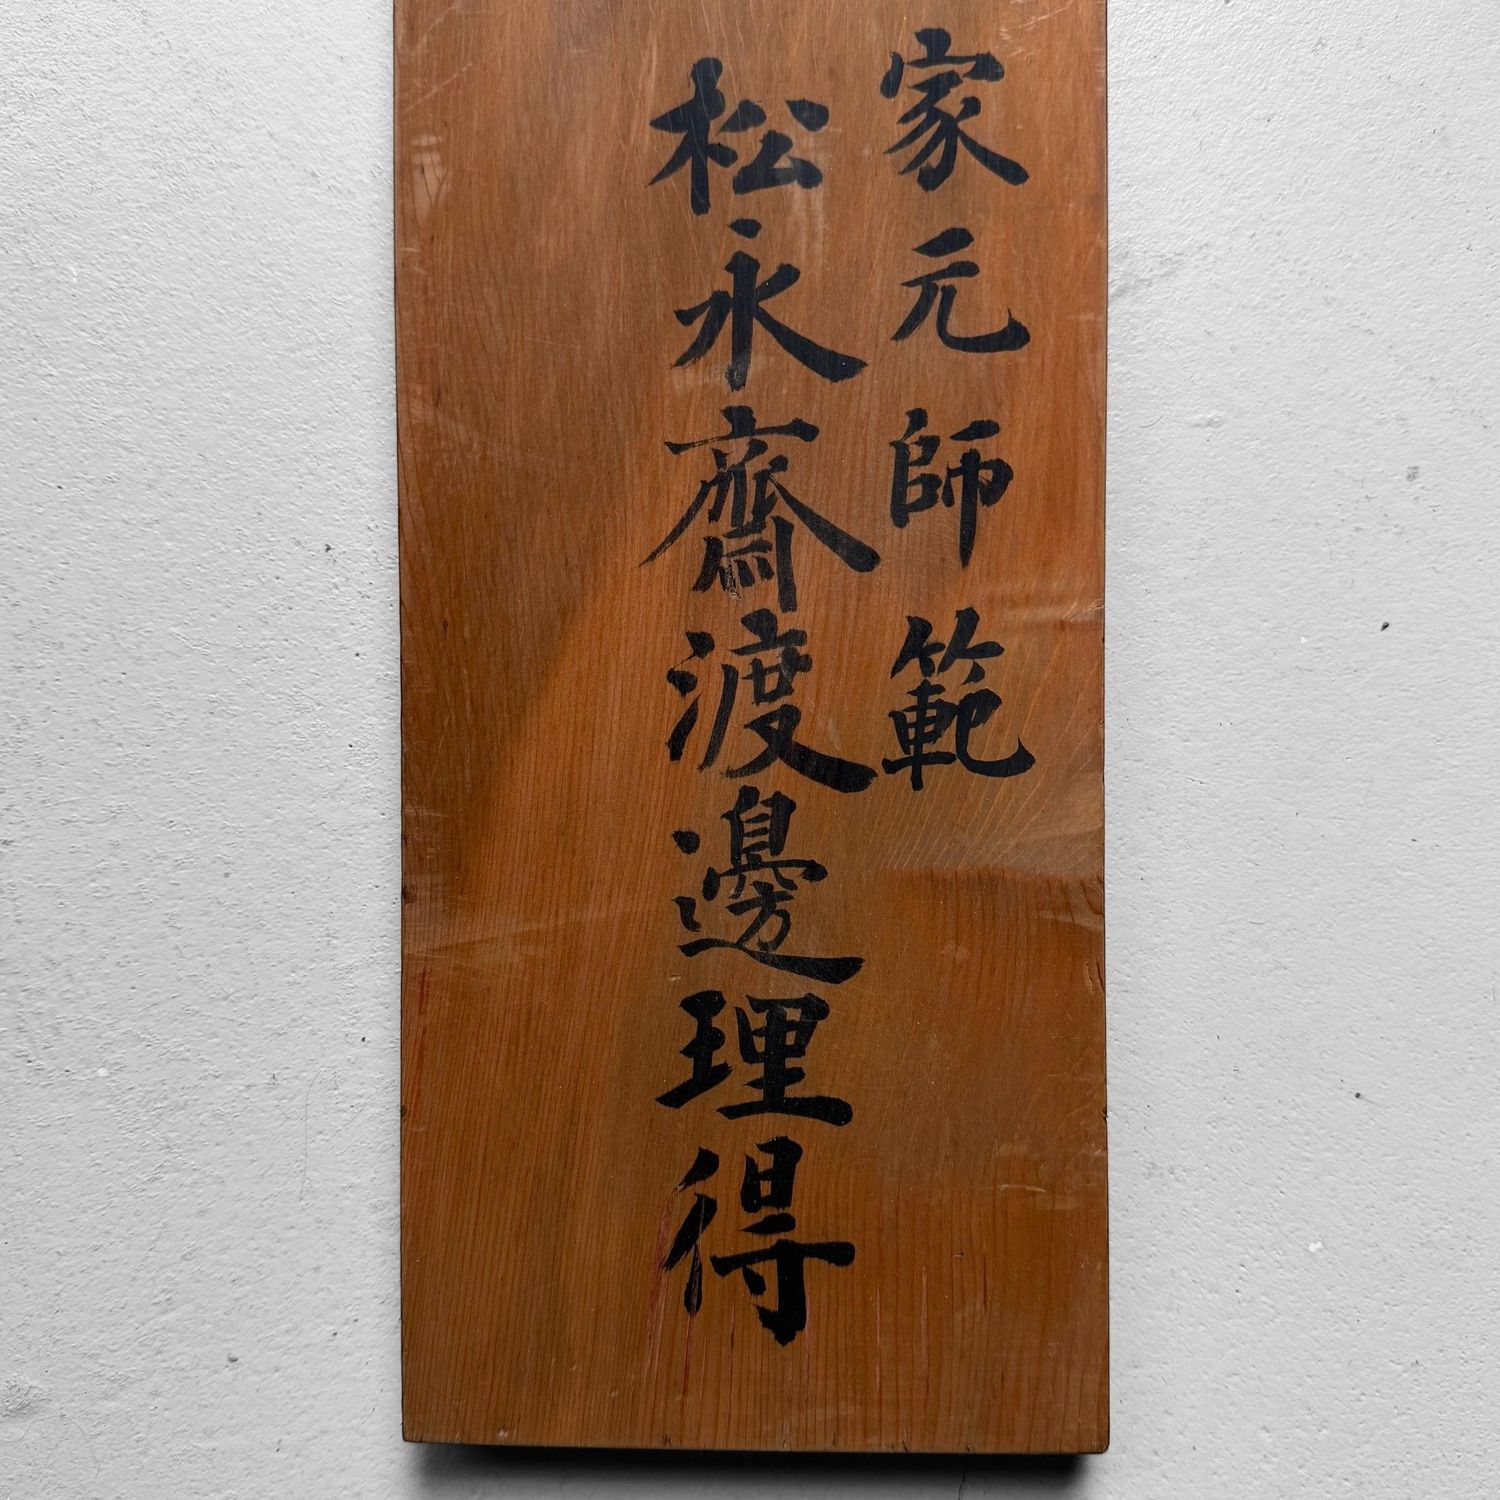 家元師範
松永齋渡邊理得